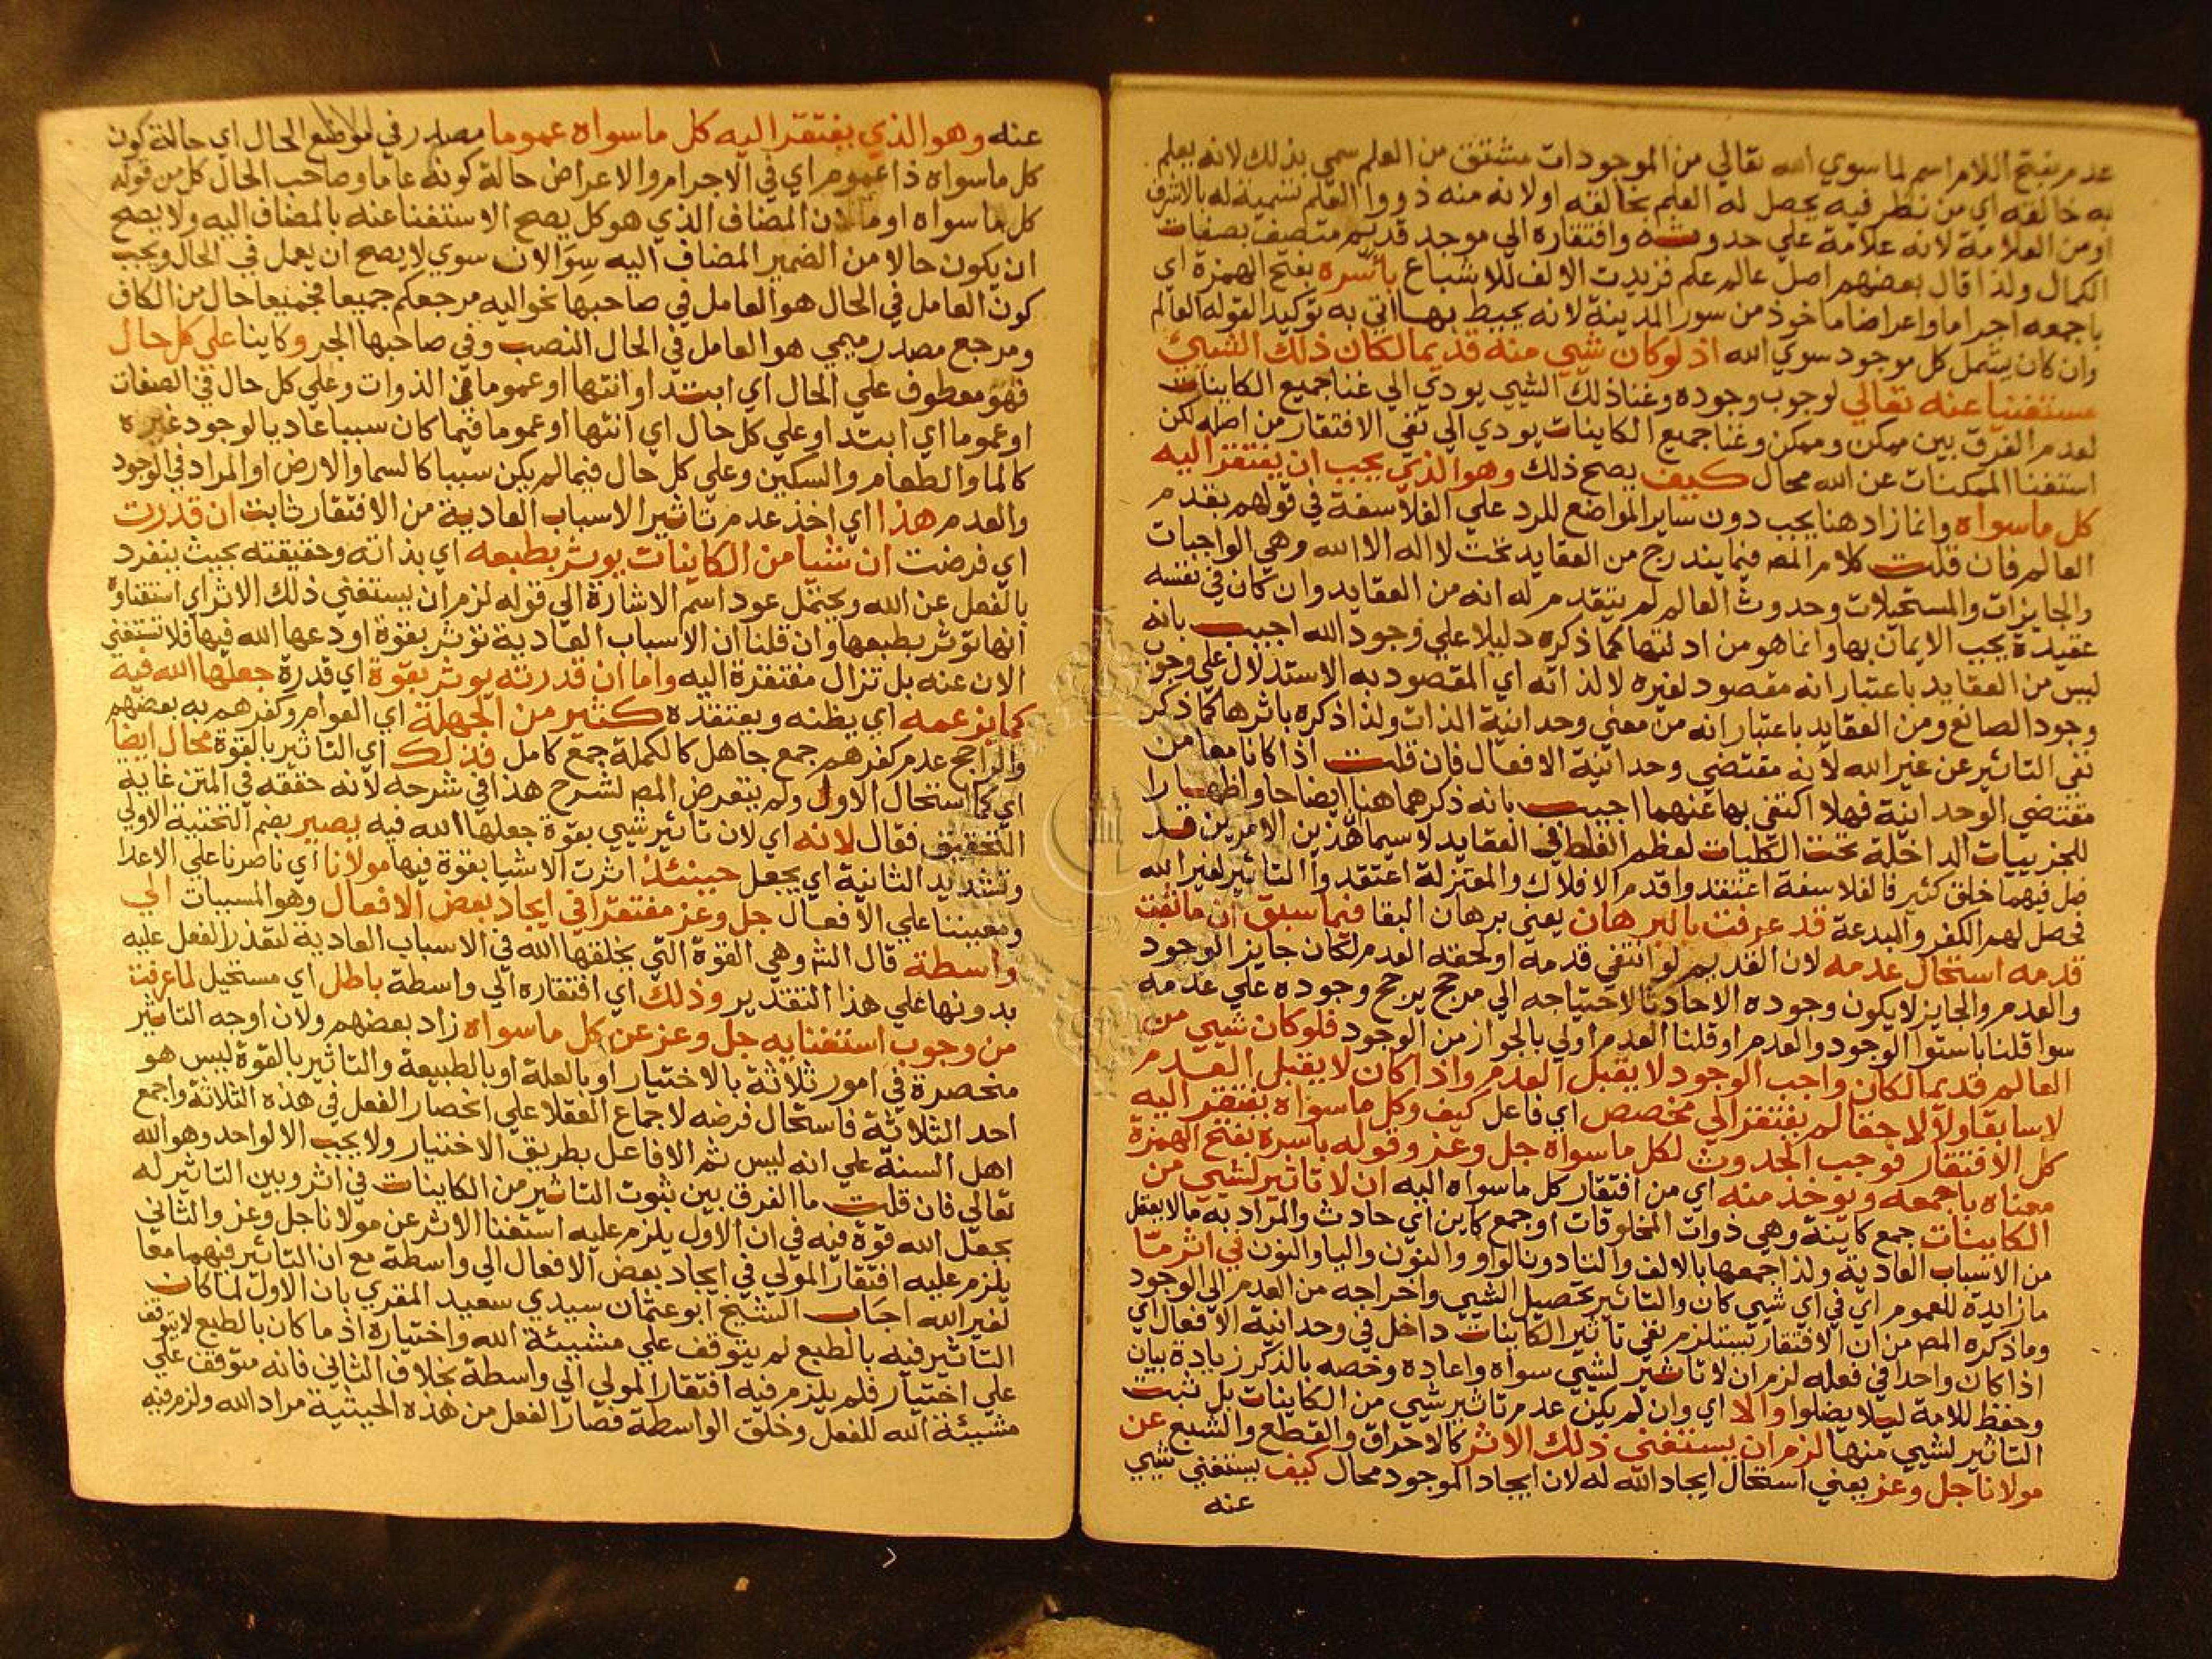 عدم بفتح اللام اسم لما سوي الله تعالي من الموجودات مشتق من العلم سمي بذلك لانه يعلم
به خالقه اي من نظر فيه يحصل له العلم بخالقه اولا نه منه ذووا العلم تسمية له بالاشرف
اومن العلامة لانه علامة علي حدوثه وافتقاره الي موجد قديم متصف بصفات
الكمال ولذا قال بعضهم اصل عالم علم فزيدت الالف للاشباع باسره بفتح الهمزة اي
باجمعه اجراما واعراضا ماخوذ من سور المدينة لانه يحيط بها اتي به توكيدا لقوله العالم
وان كان يشمل كل موجود سوي الله اذ لو كان شي منه قديما لكان ذلك الشيئ
مستغنيا عنه تعالي لوجوب وجوده وغنا ذلك الشيي يودي الي غنا جميع الكاينات
لعدم الفرق بين ممكن وممكن وغنا جميع الكاينات يودي الي نفي الافتقار من اصله لكن
استغنا الممكنات عن الله محال كيف يصح ذلك وهو الذي يجب ان يفتقر اليه
كل ما سواه وانما زاد هنا يجب دون ساير المواضع للرد علي الفلاسفة في قولهم بقدم
العالم فان قلت كلام المص فيما يندرج من العقايد تحت لا اله الا الله وهي الواجبات
والجايزات والمستحيلات وحدوث العالم لم يتقدم له انه من العقايد وان كان في نفسه
عقيدة يجب الايمان بها وانما هو من ادلتها كما ذكره دليلا علي وجود الله اجيب بانه
ليس من العقايد باعتبار انه مقصود لغيره لا لذاته اي المقصود به الاستدلال علي وجوب
وجود الصانع ومن العقايد باعتبار انه من معني وحدانية الذات ولذا ذكره باثرها كما ذكر
نفي التاثير عن غير الله لانه مقتضي وحدانية الافعال فان قلت اذا كانا معا من
مقتضي الوحدانية فهلا اكتفي بها عنهما اجيب بانه ذكرهما هنا ايضاحا واظهارا
للجزييات الداخلة تحت الكليات لعظم الغلط في العقايد لا سيما هذين الامرين قد
ضل فيهما خلق كثير فالفلاسفة اعتقدوا قدم الافلاك والمعتزلة اعتقدوا التاثير لغير الله
فحصل لهم الكفر والبدعة قد عرفت بالبرهان يعني برهان البقا فيما سبق ان ما ثبت
قدمه استحال عدمه لان القديم لو انتفي قدمه او لحقه العدم لكان جايز الوجود
والعدم والجايز لا يكون وجوده الا حادثا لاحتياجه الي مرجح يرجح وجوده علي عدمه
سوا قلنا باستوا الوجود والعدم او قلنا العدم اولي بالجواز من الوجود فلو كان شيي من
العالم قديما لكان واجب الوجود لا يقبل العدم واذا كان لا يقبل العدم
لا سابقا ولا لاحقا لم يفتقر الي مخصص اي فاعل كيف وكل ما سواه يفتقر اليه
كل الافتقار فوجب الحدوث لكل ما سواه جل وعز وقوله باسره بفتح الهمزة
معناه باجمعه ويوخذ منه اي من افتقار كل ما سواه اليه ان لا تاثير لشيي من
الكاينات جمع كاينة وهي ذوات المخلوقات او جمع كاين اي حادث والمراد به ما لا يعقل
من الاسباب العادية ولذا جمعها بالالف والتا دون الواو والنون والياو النون في اثر ما
ما زايدة للعموم اي في اي شيي كان والتاثير تحصيل الشيي واخراجه من العدم الي الوجود
وما ذكره المص من ان الافتقار يستلزم نفي تاثير الكاينات داخل في وحدانية الافعال اي
اذا كان واحدا في فعله لزم ان لا تاثير لشيي سواه واعاده وخصه بالذكر زيادة بيان
وحفظ للامة ليلا يضلوا والا اي وان لم يكن عدم تاثير شيي من الكاينات بل ثبت
التاثير لشيي منها لزم ان يستغني ذلك الاثر كالاحراق والقطع والشبع عن
مولانا جل وعز يعني استحال ايجاد الله له لان ايجاد الموجود محال كيف يستغني شيي
عنه
عنه وهو الذي يفتقر اليه كل ما سواه عموما مصدر في موضع الحال اي حالة كون
كل ما سواه ذا عموم اي في الاجرام والاعراض حالة كونه عاما وصاحب الحال كل من قوله
كل ما سواه او ما لان المضاف الذي هو كل يصح الاستغنا عنه بالمضاف اليه ولا يصح
ان يكون حالا من الضمير المضاف اليه سوا لان سوي لا يصح ان يعمل في الحال ويجب
كون العامل في الحال هو العامل في صاحبها نحو اليه مرجعكم جميعا فجميعا حال من الكاف
ومرجع مصدر ميمي هو العامل في الحال النصب وفي صاحبها الجر وكاينا علي كل حال
فهو معطوف علي الحال اي ابتدا وانتها او عموما في الذوات وعلي كل حال في الصفات
او عموما اي ابتدا وعلي كل حال اي انتها او عموما فيما كان سببا عاديا لوجود غيره
كالما والطعام والسكين وعلي كل حال فيما لم يكن سببا كالسما والارض او المراد في الوجود
والعدم هذا اي اخذ عدم تاثير الاسباب العادية من الافتقار ثابت ان قدرت
اي فرضت ان شيا من الكاينات يوثر بطبعه اي بذاته وحقيقته بحيث ينفرد
بالفعل عن الله ويحتمل عود اسم الاشارة الي قوله لزم ان يستغني ذلك الاثر اي استغناوه
انها توثر بطبعها وان قلنا ان الاسباب العادية توثر بقوة اودعها الله فيها فلا تستغني
الان عنه بل تزال مفتقرة اليه واما ان قدرته يوثر بقوة اي قدرة جعلها الله فيه
كما يزعمه اي يظنه ويعتقده كثير من الجهلة اي العوام وكفرهم به بعضهم
والراجح عدم كفرهم جمع جاهل كالكملة جمع كامل فذلك اي التاثير بالقوة محال ايضا
اي كما استحال الاول ولم يتعرض المص لشرح هذا في شرحه لانه حققه في المتن غاية
التحقيق فقال لانه اي لان تاثير شيي بقوة جعلها الله فيه يصير بضم التحتية الاولي
وتشديد الثانية اي يجعل حينئذ اثرت الاشيا بقوة فيها مولانا اي ناصرنا علي الاعدا
ومعيننا علي الافعال جل وعز مفتقرا في ايجاد بعض الافعال وهو المسببات الي
واسطة قال الشم وهي القوة التي يخلقها الله في الاسباب العادية لتعذر الفعل عليه
بدونها علي هذا التقدير وذلك اي افتقاره الي واسطة باطل اي مستحيل لما عرفت
من وجوب استغنايه جل وعز عن كل ما سواه زاد بعضهم ولان اوجه التاثير
منحصرة في امور ثلاثة بالاختيار او بالعلة او بالطبيعة والتاثير بالقوة ليس هو
احد الثلاثة فاستحال فرضه لاجماع العقلا علي انحصار الفعل في هذه الثلاثة واجمع
اهل السنة علي انه ليس ثم الا فاعل بطريق الاختيار ولا يجب الا لواحد وهو الله
تعالي فان قلت ما الفرق بين ثبوت التاثير من الكاينات في اثر وبين التاثير له
بجعل الله قوة فيه في ان الاول يلزم عليه استغنا الاثر عن مولانا جل وعز والثاني
يلزم عليه افتقار المولي في ايجاد بعض الافعال الي واسطة مع ان التاثير فيهما معا
لغير الله اجاب الشيخ ابو عثمان سيدي سعيد المقري بان الاول لما كان
التاثير فيه بالطبع لم يتوقف علي مشيئة الله واختياره اذ ما كان بالطبع لا يتوقف
علي اختيار فلم يلزم فيه افتقار المولي الي واسطة بخلاف الثاني فانه متوقف علي
مشيئة الله للفعل وخلق الواسطة فصار الفعل من هذه الحيثية مراد الله ولزم فيه